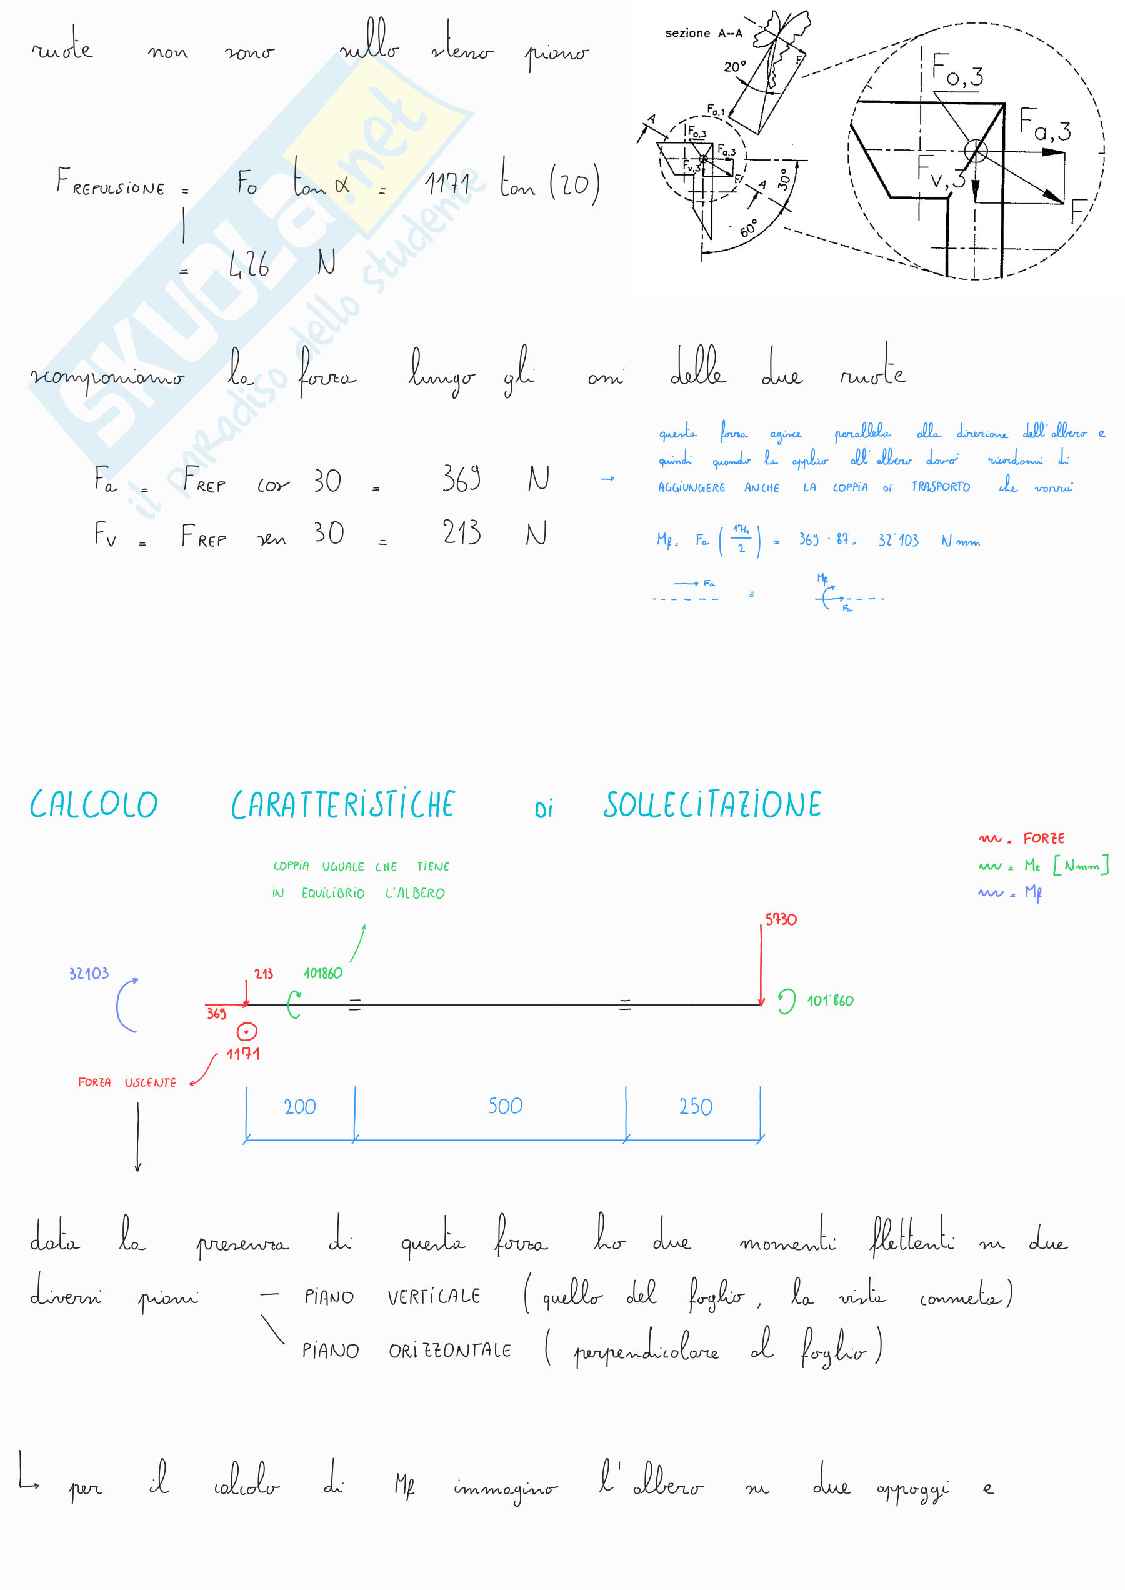 ruote non sono sullo stesso piano
sezione A-A
20°
F
Fo,1
A
Fo,3
Fa,3
Fv,3
F
A
30°
60°
Fo,3
Fa,3
Fv,3
F
FREPULSIONE = Fo tan α = 1171 tan (20)
= 426 N
scomponiamo la forza lungo gli assi delle due ruote
Fa = FREP cos 30 = 369 N →
Fv = FREP sen 30 = 213 N
questa forza agisce parallela alla direzione dell'albero e
quindi quando la applico all'albero dovrò ricordarmi di
AGGIUNGERE ANCHE LA COPPIA DI TRASPORTO che varrà
Mf = Fa (174/2) = 369 · 87 = 32'103 Nmm
Fa = Mf Fa
CALCOLO CARATTERISTICHE DI SOLLECITAZIONE
= FORZE
= Mt [Nmm]
= Mf
COPPIA UGUALE CHE TIENE
IN EQUILIBRIO L'ALBERO
5730
32103
213
101860
369
101'860
1171
FORZA USCENTE
200 500 250
data la presenza di questa forza ho due momenti flettenti su due
diversi piani — PIANO VERTICALE (quello del foglio, la vista connessa)
PIANO ORIZZONTALE (perpendicolare al foglio)
↳ per il calcolo di Mf immagino l'albero su due appoggi e
SKUOLA.net
il paradiso dello studente